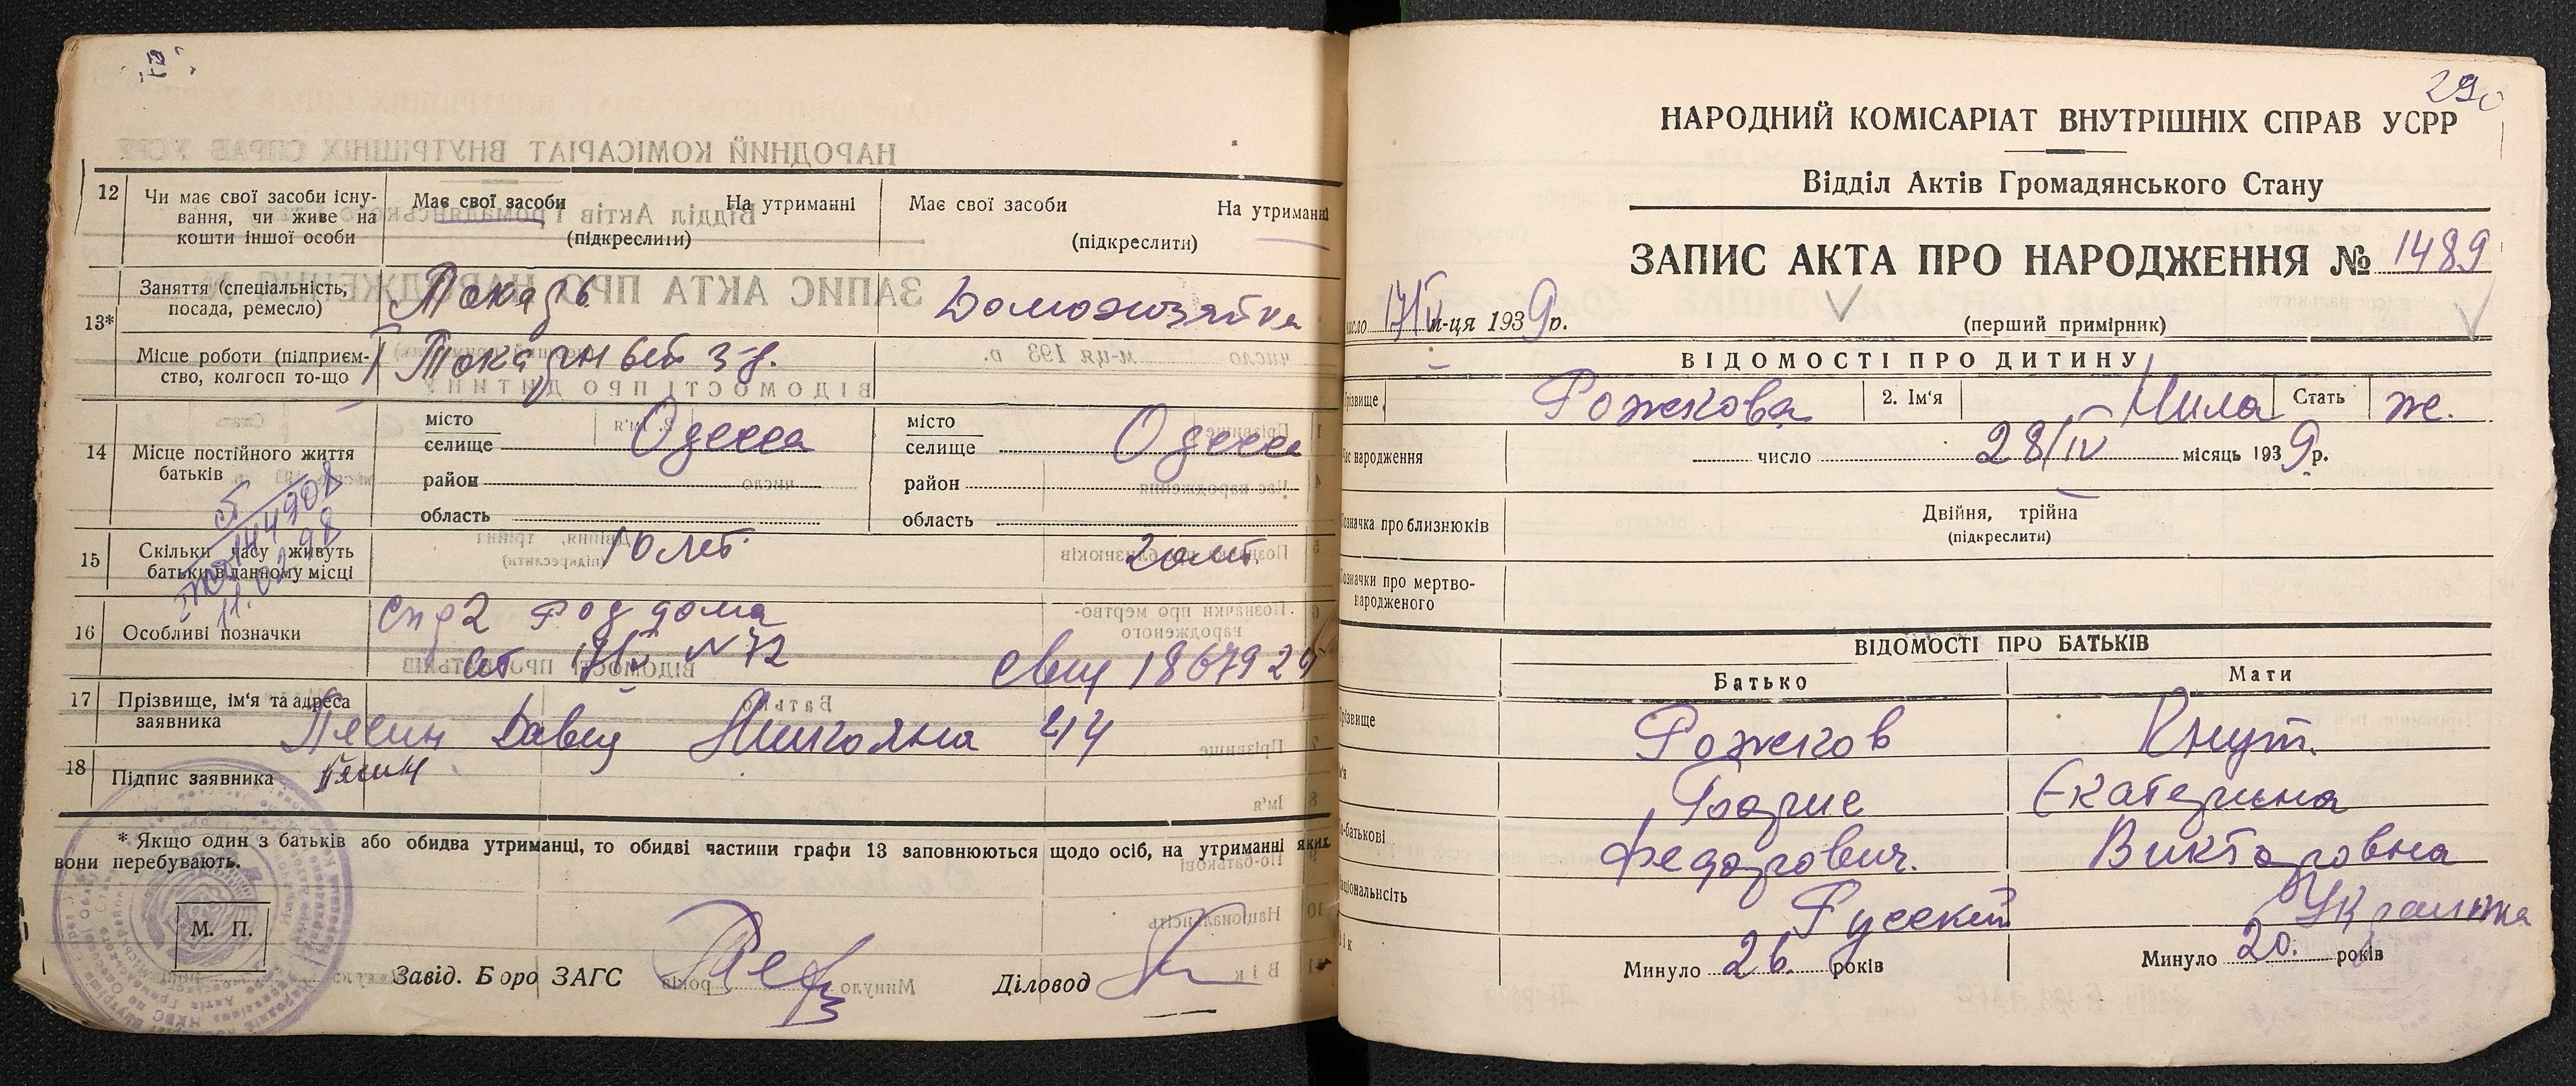 12 Чи має свої засоби існу-
вання, чи живе на
кошти іншої особи
Має свої засоби На утриманні
(підкреслити)
Має свої засоби На утриманні
(підкреслити)
13* Заняття (спеціальність,
посада, ремесло)
Токарь
Домохозяйка
Місце роботи (підприєм-
ство, колгосп то-що
14 Місце постійного життя
батьків
місто
селище Одесса
район
область
місто
селище Одесса
район
область
15 Скільки часу живуть
батьки в данному місці
10 лет.
20 лет.
11.02.98
16 Особливі позначки
Спр 2 Роддома
от № 72 свид 186792
17 Прізвище, ім'я та адреса
заявника
Давид 44
18 Підпис заявника
* Якщо один з батьків або обидва утриманці, то обидві частини графи 13 заповнюються щодо осіб, на утриманні яких
вони перебувають.
М. П.
Завід. Бюро ЗАГС
Діловод
290
НАРОДНИЙ КОМІСАРІАТ ВНУТРІШНІХ СПРАВ УСРР
Відділ Актів Громадянського Стану
ЗАПИС АКТА ПРО НАРОДЖЕННЯ № 1489
число 17/V м-ця 1939 р.
(перший примірник)
ВІДОМОСТІ ПРО ДИТИНУ
Прізвище Рожкова 2. Ім'я Нила Стать ж.
Час народження число 28/IV місяць 1939 р.
Позначка про близнюків
Двійня, трійна
(підкреслити)
Позначки про мертво-
народженого
ВІДОМОСТІ ПРО БАТЬКІВ
Батько Мати
Прізвище Рожков Кнут.
Ім'я Борис Екатерина
По-батькові Федорович. Викторовна
Національнсіть Русский Украинка
Вік Минуло 26. років Минуло 20. років